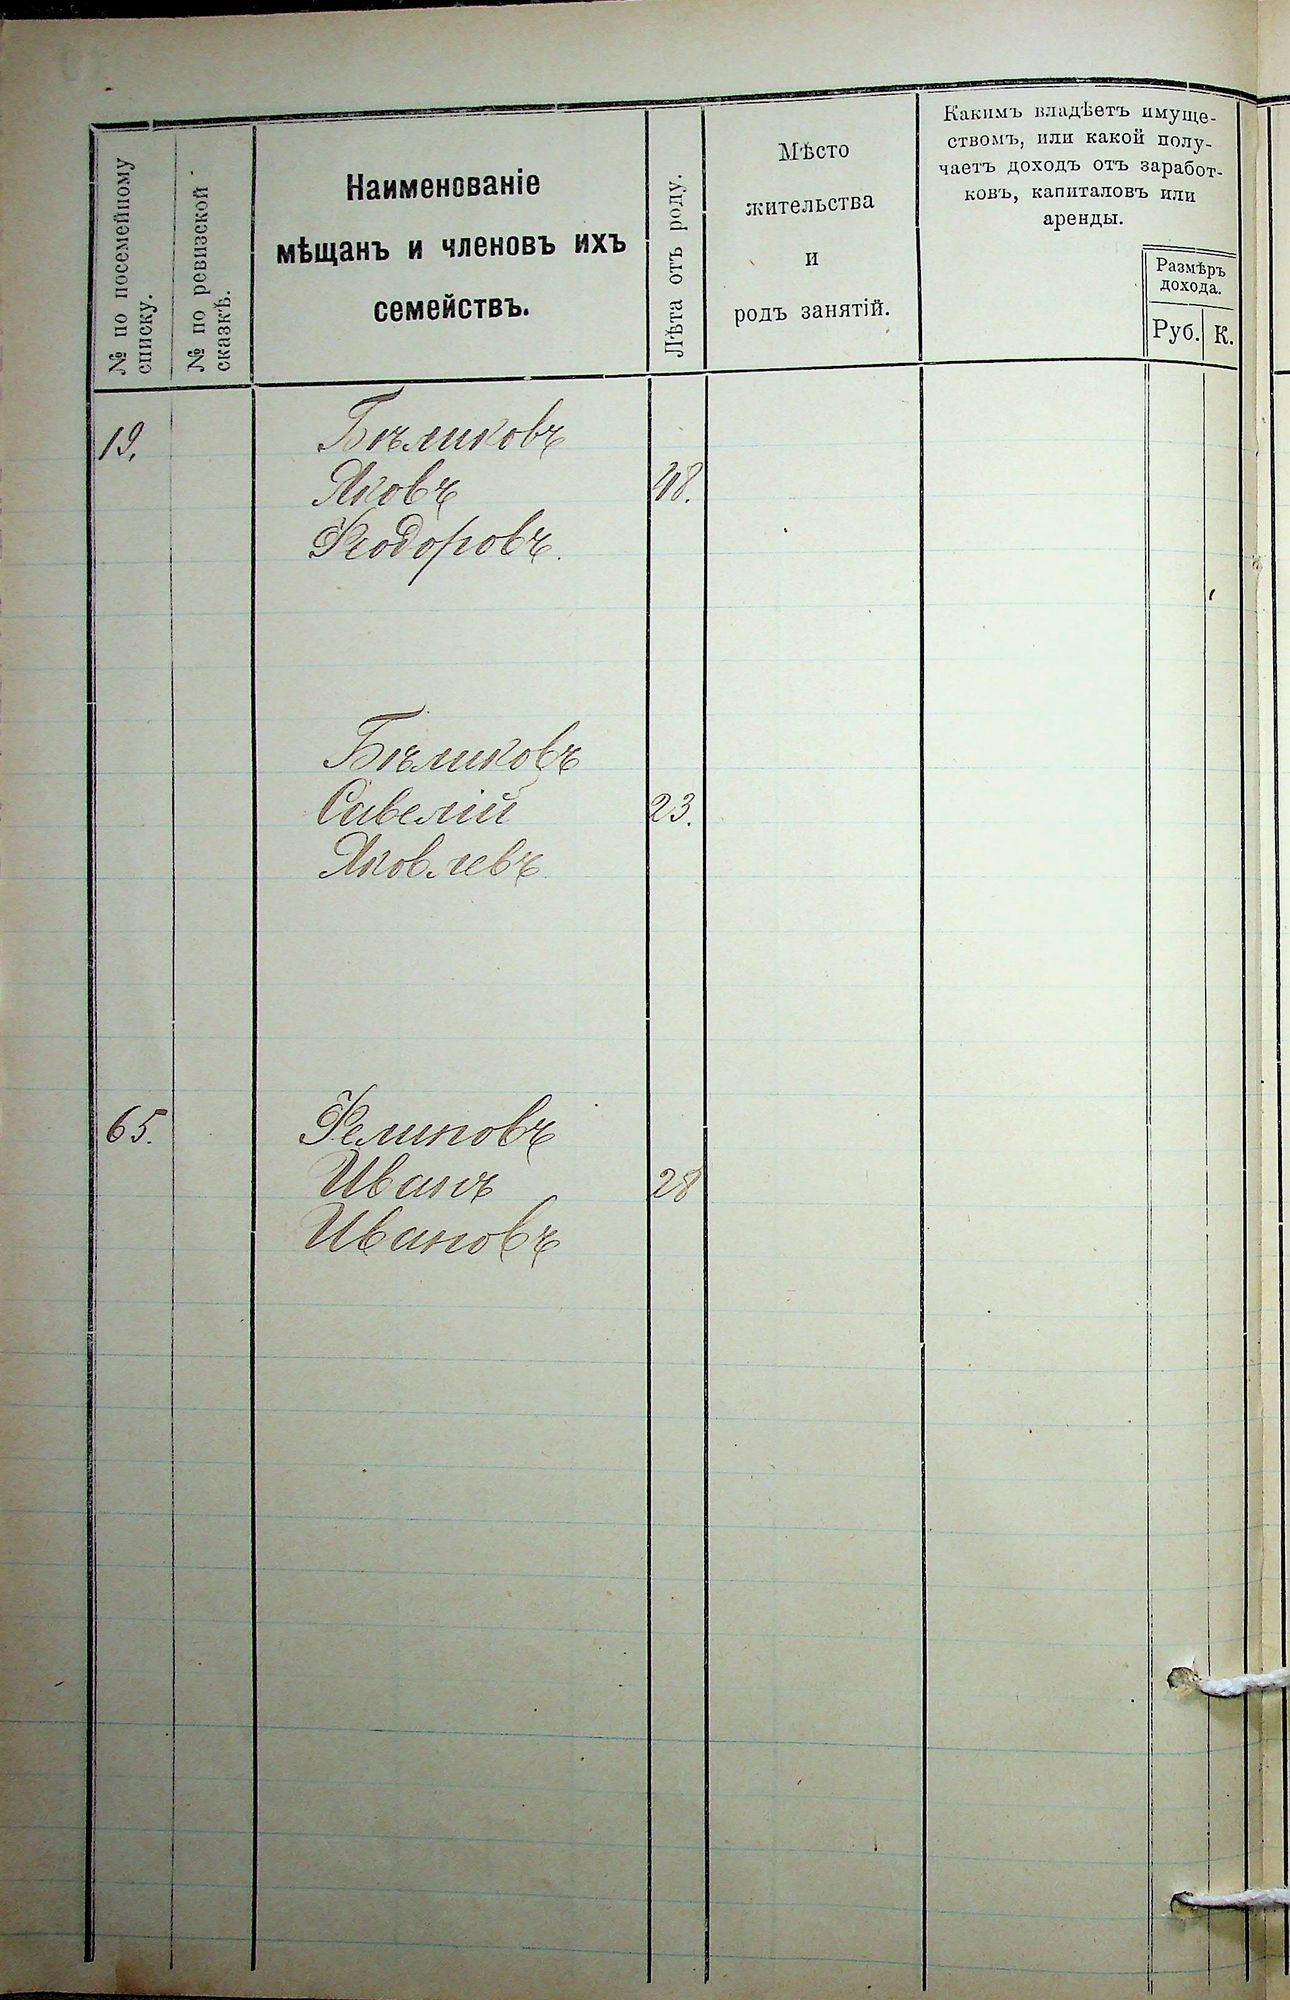 № по посемейному
списку.
№ по ревизской
сказкѣ.
Наименованіе
мѣщанъ и членовъ ихъ
семействъ.
Лѣта отъ роду.
Мѣсто
жительства
и
родъ занятій.
Какимъ владѣетъ имуще-
ствомъ, или какой полу-
чаетъ доходъ отъ заработ-
ковъ, капиталовъ или
аренды.
Размѣръ
дохода.
Руб. К.
19. Бѣликовъ
Яковъ 48.
Ѳеодоровъ.
Бѣликовъ
Савелій 23.
Яковлевъ
65.
Иванъ 28
Ивановъ